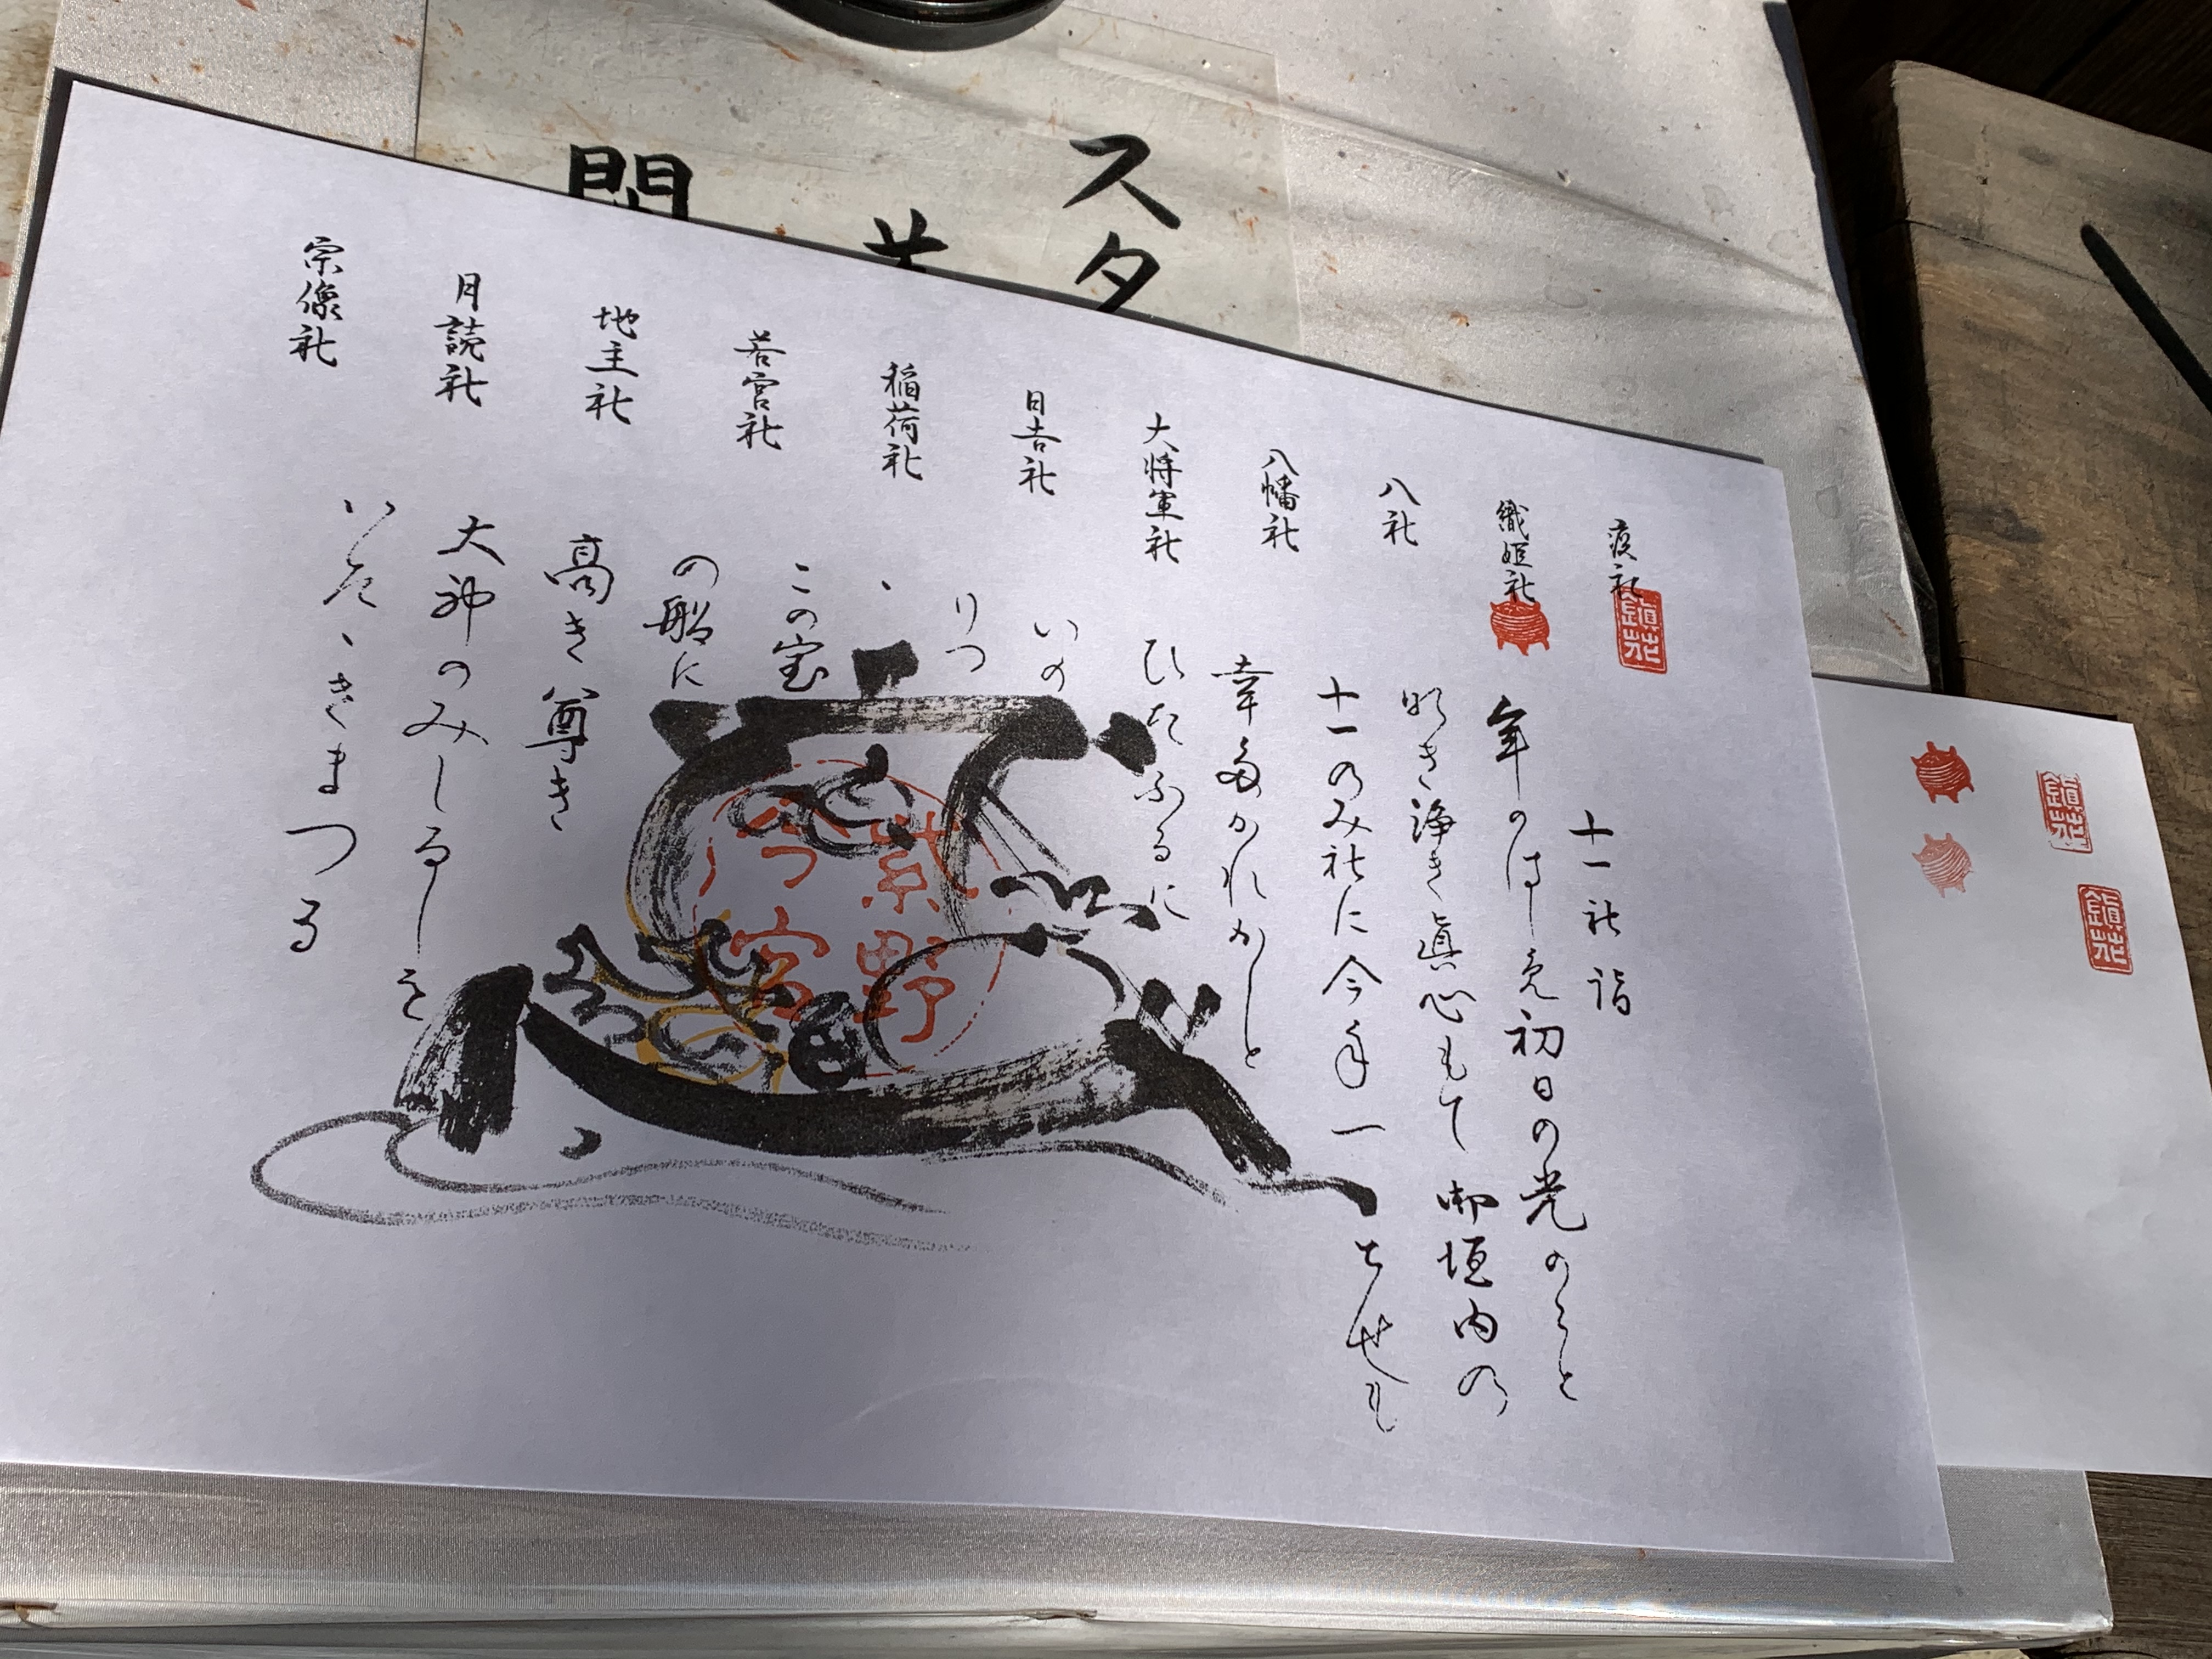 スタ
疫社
織姫社
八社
八幡社
大将軍社
日吉社
稲荷社
若宮社
地主社
月読社
宗像社
十一社詣
年のはしめ初日の光のこと
明き浄き眞心もて御垣内の
十一のみ社に今年一
とせも
幸多かれかしと
ひたふるに
いの
りつゝ
この宝
の船に
高き尊き
大神のみしるしを
いたゝきまつる
紫野
今宮
鎮花
鎮花
鎮花